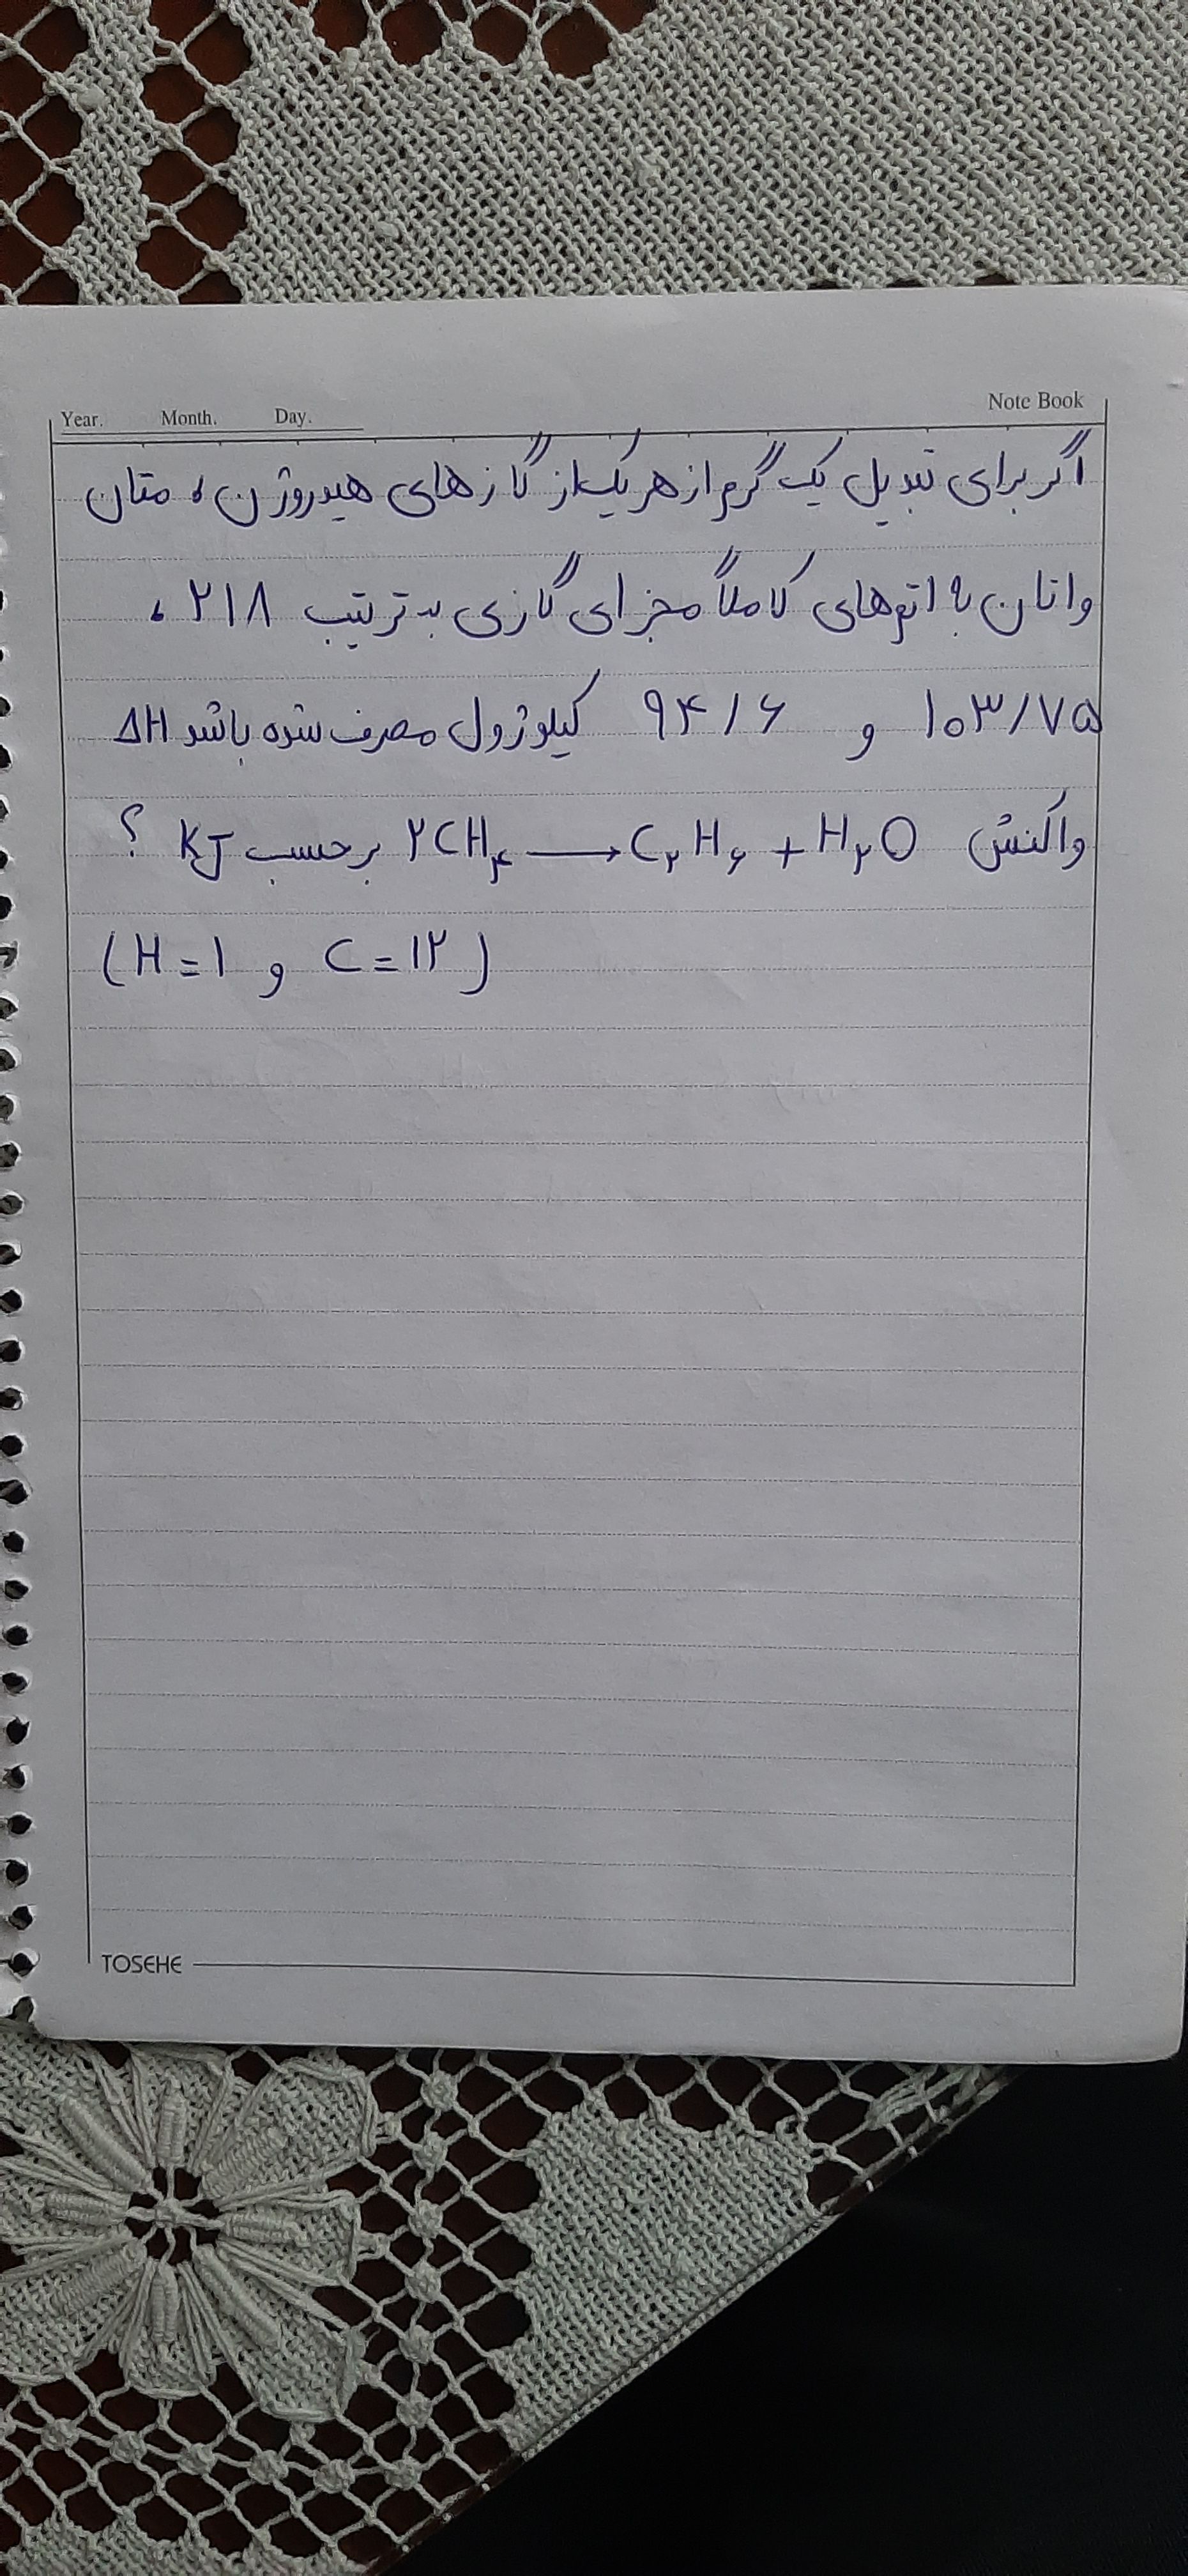 Year. Month. Day. Note Book
اگر برای تبدیل یک گرم از هر یک از گازهای هیدروژن، متان
و اتان به اتم‌های کاملاً مجزای گازی به ترتیب ۲۱۸،
۱۰۳/۷۵ و ۹۴/۶ کیلوژول مصرف شده باشد ΔH
واکنش ۲CH۴ → C۲H۶ + H۲O برحسب KJ ؟
(H=۱ و C=۱۲)
TOSEHE